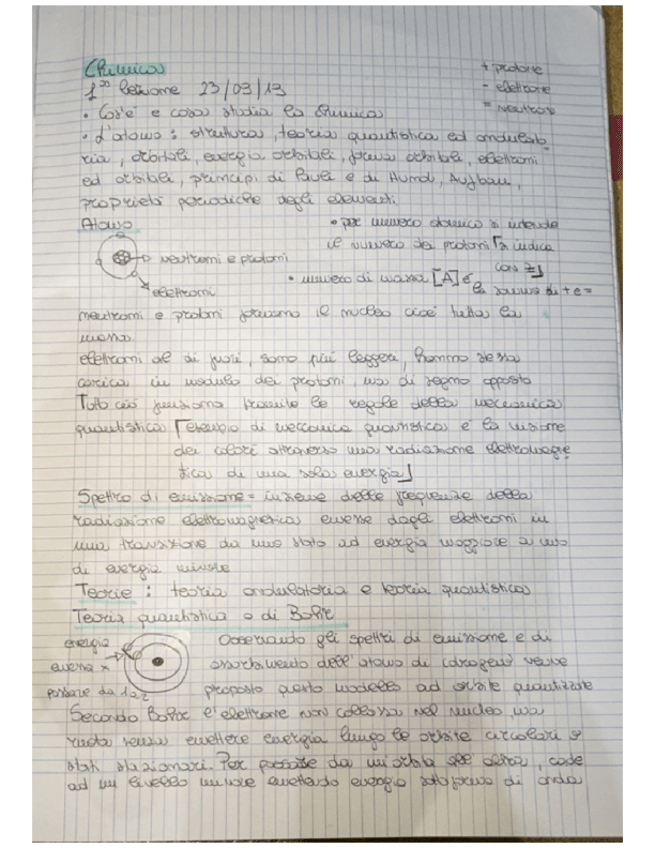 Chimica
+ protone
1ª lezione 23/03/13
- elettrone
= neutroni
• Cos'è e cosa studia la chimica
• L'atomo: struttura, teoria quantistica ed ondulato
ria, orbitali, energia orbitali, forma orbitali, elettroni
ed orbitali, principi di Pauli e di Hund, Aufbau,
proprietà periodiche degli elementi
Atomo
• per numero atomico si intende
il numero dei protoni [si indica
con z]
neutroni e protoni
elettroni
• numero di massa [A] è
la somma di + e =
neutroni e protoni formano il nucleo cioè tutta la
massa
elettroni al di fuori, sono più leggeri, hanno stessa
carica in modulo dei protoni, ma di segno opposto
Tutto ciò funziona tramite le regole della meccanica
quantistica [esempio di meccanica quantistica è la visione
dei colori attraverso una radiazione elettromagne
tica di una sola energia]
Spettro di emissione = insieme delle frequenze della
radiazione elettromagnetica emesse dagli elettroni in
una transizione da uno stato ad energia maggiore a uno
di energia minore
Teorie: teoria ondulatoria e teoria quantistica
Teoria quantistica o di Bohr
energia
emessa x
passare da 1 a 2
Osservando gli spettri di emissione e di
assorbimento dell'atomo di idrogeno venne
proposto questo modello ad orbite quantizzate
Secondo Bohr l'elettrone non collassa nel nucleo, ma
ruota senza emettere energia lungo le orbite circolari o
stati stazionari. Per passare da un'orbita all'altra, cade
ad un livello minore emettendo energia sotto forma di onda